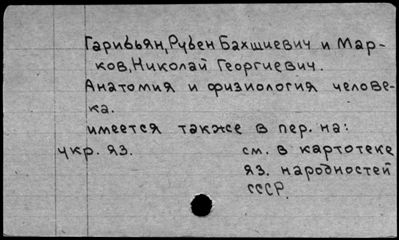 Гарибьян, Рубен Бахшиевич и Мар-
ков, Николай Георгиевич.
Анатомия и физиология челове-
ка.
имеется также в пер. на:
укр. яз. см. в картотеке
яз. народностей
СССР.